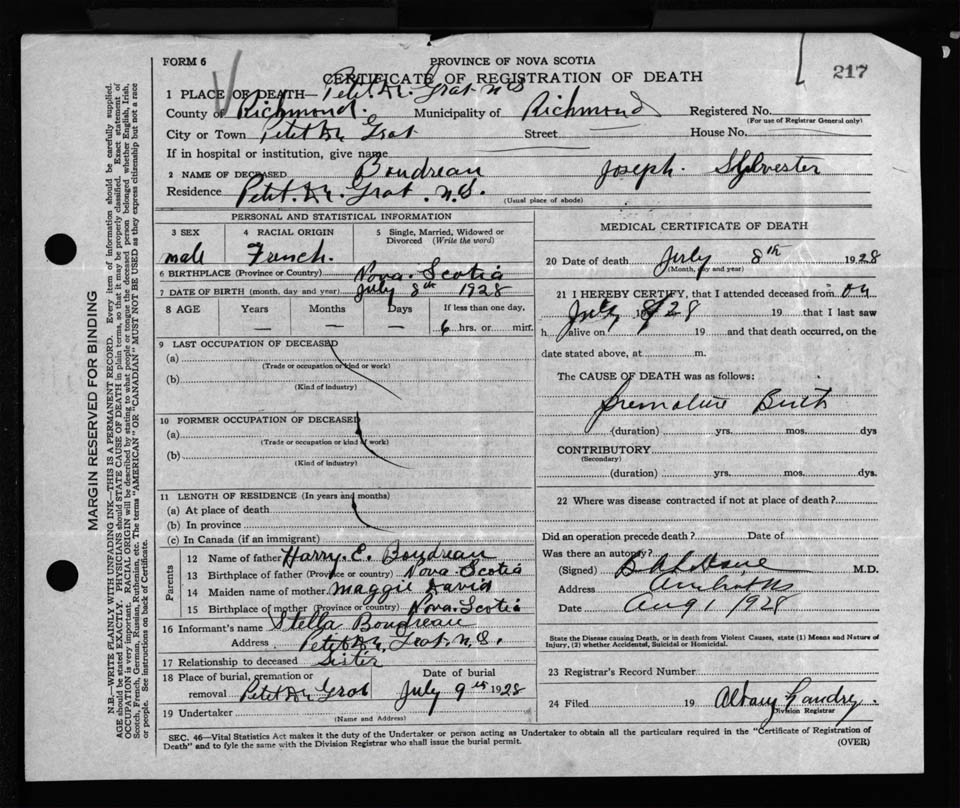 FORM 6
PROVINCE OF NOVA SCOTIA
CERTIFICATE OF REGISTRATION OF DEATH
217
1 PLACE OF DEATH— Petit de Grat N S
County of Richmond. Municipality of Richmond Registered No.
(For use of Registrar General only)
City or Town Petit de Grat Street House No.
If in hospital or institution, give name
2 NAME OF DECEASED Boudreau Joseph. Sylvester
Residence Petit. de. Grat. N.S.
(Usual place of abode)
PERSONAL AND STATISTICAL INFORMATION
3 SEX
male
4 RACIAL ORIGIN
French.
5 Single, Married, Widowed or
Divorced (Write the word)
6 BIRTHPLACE (Province or Country) Nova. Scotia
7 DATE OF BIRTH (month, day and year) July 8th 1928
8 AGE Years Months Days If less than one day,
— — — 6 hrs. or min.
9 LAST OCCUPATION OF DECEASED
(a)
(Trade or occupation or kind or work)
(b)
(Kind of industry)
10 FORMER OCCUPATION OF DECEASED
(a)
(Trade or occupation or kind of work)
(b)
(Kind of industry)
11 LENGTH OF RESIDENCE (In years and months)
(a) At place of death
(b) In province
(c) In Canada (if an immigrant)
Parents
12 Name of father Harry. E. Boudreau
13 Birthplace of father (Province or country) Nova. Scotia
14 Maiden name of mother Maggie David
15 Birthplace of mother (Province or country) Nova. Scotia
16 Informant's name Stella Boudreau
Address Petit de Grat N.S.
17 Relationship to deceased Sister
18 Place of burial, cremation or
removal Petit de Grat
Date of burial
July 9th 1928
19 Undertaker
(Name and Address)
MEDICAL CERTIFICATE OF DEATH
20 Date of death July 8th 1928
(Month, day and year)
21 I HEREBY CERTIFY, that I attended deceased from on
July 8/28 19 that I last saw
h alive on 19 and that death occurred, on the
date stated above, at m.
The CAUSE OF DEATH was as follows:
Premature Birth
(duration) yrs. mos. dys
CONTRIBUTORY
(Secondary)
(duration) yrs. mos. dys.
22 Where was disease contracted if not at place of death?
Did an operation precede death? Date of
Was there an autopsy?
(Signed) M.D.
Address
Date Aug 1 1928
State the Disease causing Death, or in death from Violent Causes, state (1) Means and Nature of
Injury, (2) whether Accidental, Suicidal or Homicidal.
23 Registrar's Record Number
24 Filed 19 Landry.
Division Registrar
SEC. 46—Vital Statistics Act makes it the duty of the Undertaker or person acting as Undertaker to obtain all the particulars required in the "Certificate of Registration of
Death" and to fyle the same with the Division Registrar who shall issue the burial permit. (OVER)
MARGIN RESERVED FOR BINDING
N.B.—WRITE PLAINLY WITH UNFADING INK—THIS IS A PERMANENT RECORD. Every item of information should be carefully supplied.
AGE should be stated EXACTLY. PHYSICIANS should STATE CAUSE OF DEATH in plain terms, so that it may be properly classified. Exact statement of
OCCUPATION is very important. RACIAL ORIGIN will be described by stating to what people or tongue the deceased person belonged whether English, Irish,
Scotch, French, German, Russian, Ruthenian, etc. The terms "AMERICAN" OR "CANADIAN" MUST NOT BE USED as they express citizenship but not a race
or people. See instructions on back of Certificate.